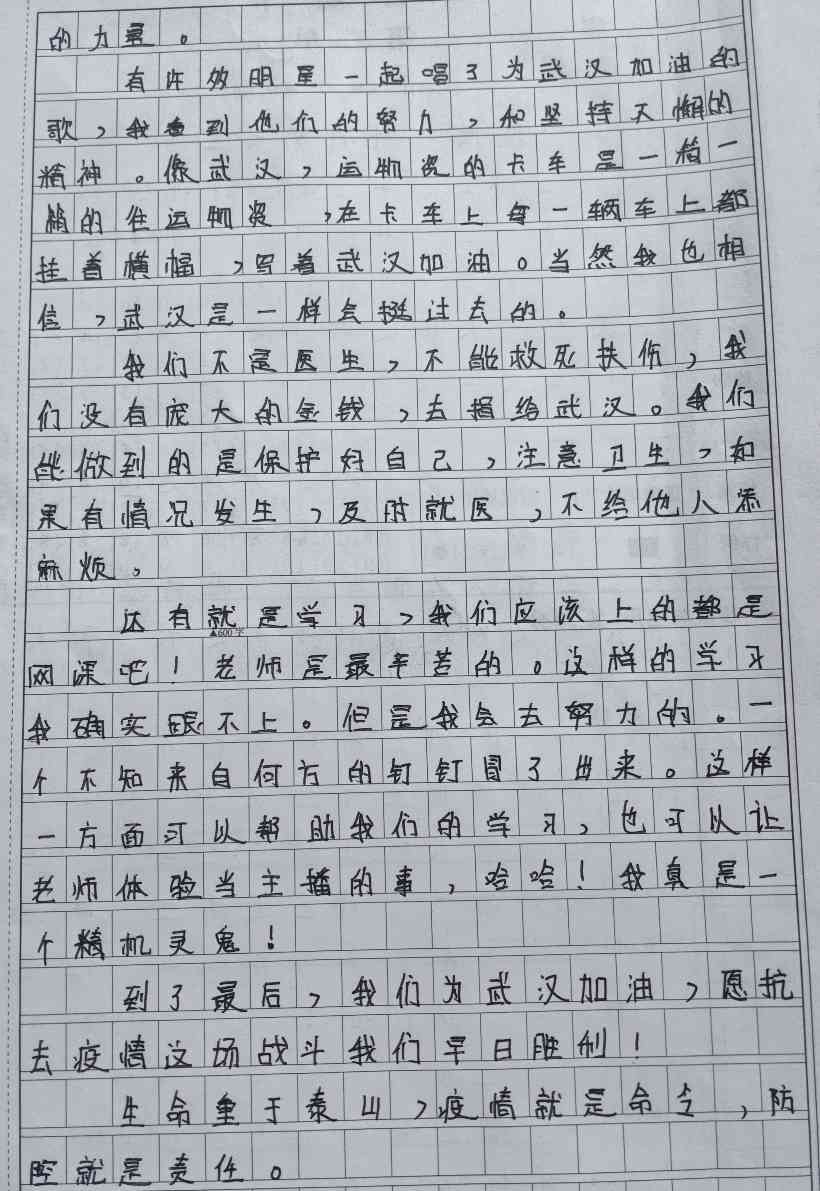 的力量。
有许多明星一起唱了为武汉加油的
歌,我看到他们的努力,和坚持不懈的
精神。像武汉,运物资的卡车是一箱一
箱的往运物资,在卡车上每一辆车上都
挂着横幅,写着武汉加油。当然我也相
信,武汉是一样会挺过去的。
我们不是医生,不能救死扶伤,我
们没有庞大的金钱,去捐给武汉。我们
能做到的是保护好自己,注意卫生,如
果有情况发生,及时就医,不给他人添
麻烦,
还有就是学习,我们应该上的都是
▲600字
网课吧!老师是最辛苦的。这样的学习
我确实跟不上。但是我会去努力的。一
个不知来自何方的钉钉冒了出来。这样
一方面可以帮助我们的学习,也可以让
老师体验当主播的事,哈哈!我真是一
个精机灵鬼!
到了最后,我们为武汉加油,愿抗
去疫情这场战斗我们早日胜利!
生命重于泰山,疫情就是命令,防
控就是责任。